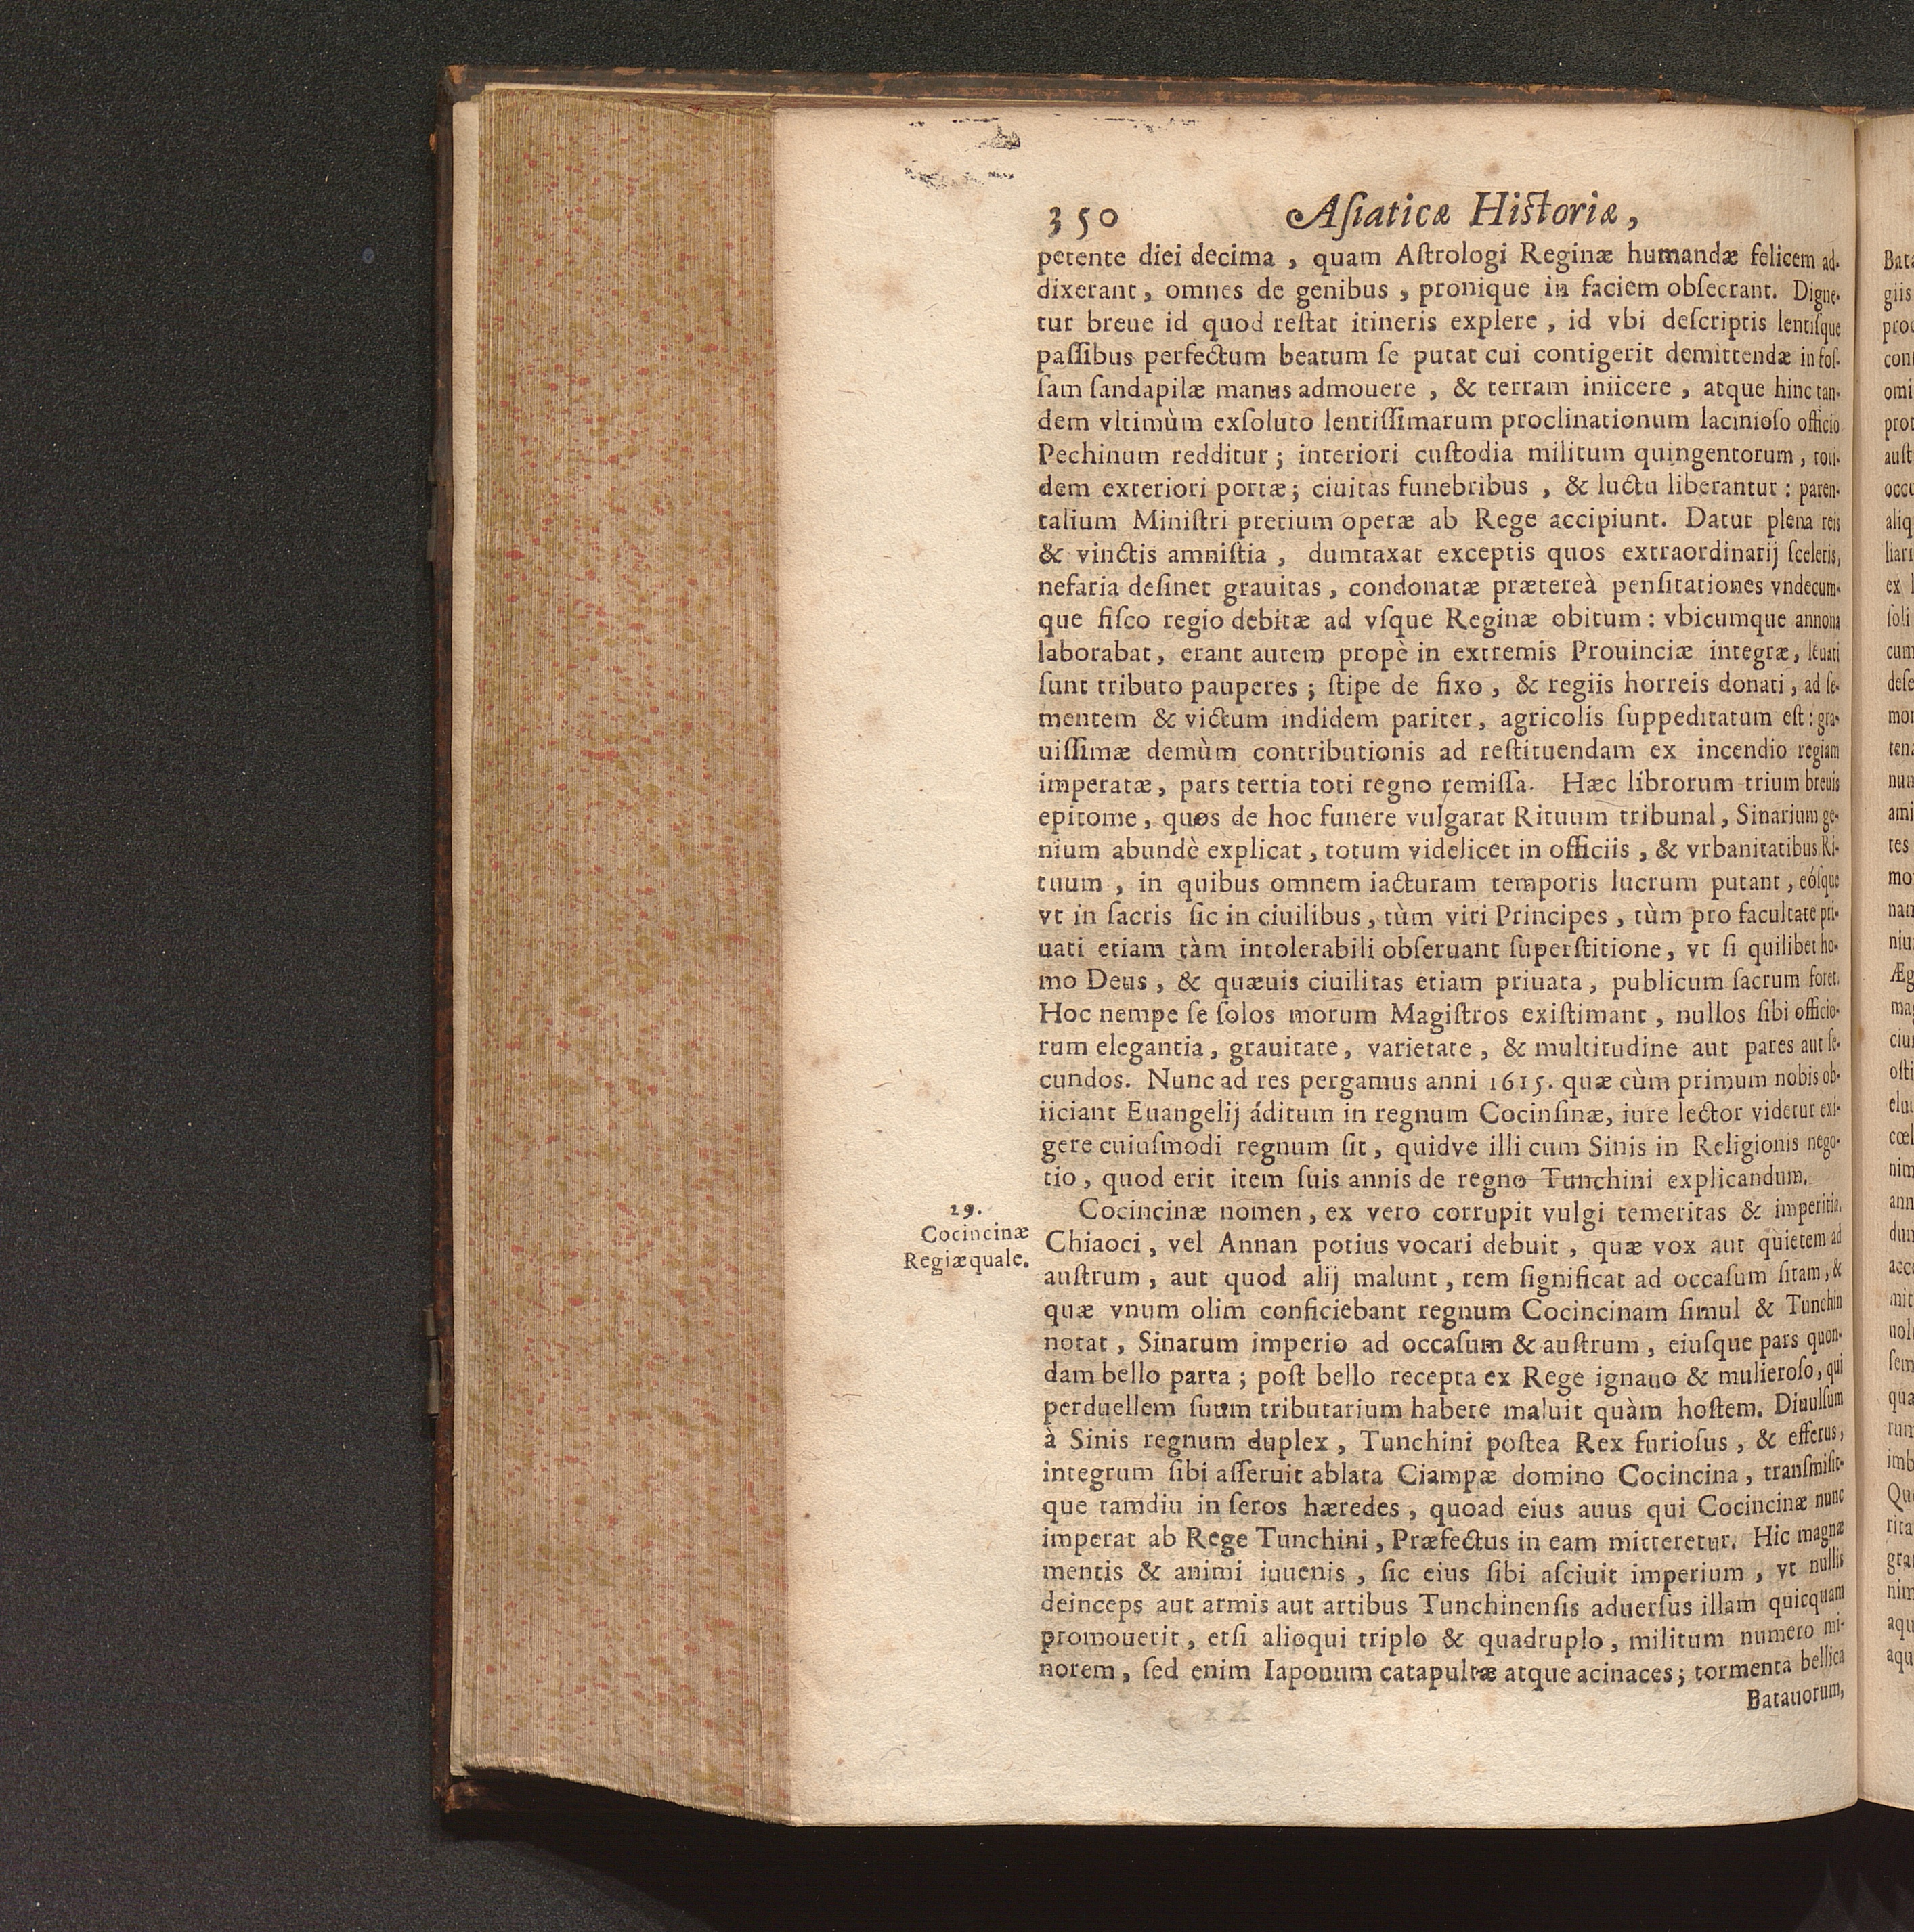 350 Aſiaticæ Hiſtoriæ,
petente diei decima , quam Aſtrologi Reginæ humandæ felicem ad-
dixerant , omnes de genibus , pronique in faciem obſecrant. Digne-
tur breue id quod reſtat itineris explere , id vbi deſcriptis lentiſque
paſſibus perfectum beatum ſe putat cui contigerit demittendæ in foſ-
ſam ſandapilæ manus admouere , & terram iniicere , atque hinc tan-
dem vltimùm exſoluto lentiſſimarum proclinationum lacinioſo officio
Pechinum redditur ; interiori cuſtodia militum quingentorum , toti-
dem exteriori portæ ; ciuitas funebribus , & luctu liberantur : paren-
talium Miniſtri pretium operæ ab Rege accipiunt. Datur plena reis
& vinctis amniſtia , dumtaxat exceptis quos extraordinarij ſceleris,
nefaria deſinet grauitas , condonatæ prætereà penſitationes vndecum-
que fiſco regio debitæ ad vſque Reginæ obitum : vbicumque annona
laborabat , erant autem propè in extremis Prouinciæ integræ, leuati
ſunt tributo pauperes ; ſtipe de fixo , & regiis horreis donati , ad ſe-
mentem & victum indidem pariter , agricolis ſuppeditatum eſt : gra-
uiſſimæ demùm contributionis ad reſtituendam ex incendio regiam
imperatæ , pars tertia toti regno remiſſa. Hæc librorum trium breuis
epitome , quos de hoc funere vulgarat Rituum tribunal , Sinarium ge-
nium abundè explicat , totum videlicet in officiis , & vrbanitatibus Ri-
tuum , in quibus omnem iacturam temporis lucrum putant , eóſque
vt in ſacris ſic in ciuilibus , tùm viri Principes , tùm pro facultate pri-
uati etiam tàm intolerabili obſeruant ſuperſtitione , vt ſi quilibet ho-
mo Deus , & quæuis ciuilitas etiam priuata , publicum ſacrum foret.
Hoc nempe ſe ſolos morum Magiſtros exiſtimant , nullos ſibi officio-
rum elegantia , grauitate , varietate , & multitudine aut pares aut ſe-
cundos. Nunc ad res pergamus anni 1615. quæ cùm primum nobis ob-
iiciant Euangelij áditum in regnum Cocinſinæ, iure lector videtur exi-
gere cuiuſmodi regnum ſit , quidve illi cum Sinis in Religionis nego-
tio , quod erit item ſuis annis de regno Tunchini explicandum.
29.
Cocincinæ
Regiæ quale.
Cocincinæ nomen , ex vero corrupit vulgi temeritas & imperitia.
Chiaoci , vel Annan potius vocari debuit , quæ vox aut quietem ad
auſtrum , aut quod alij malunt , rem ſignificat ad occaſum ſitam , &
quæ vnum olim conficiebant regnum Cocincinam ſimul & Tunchin
notat , Sinarum imperio ad occaſum & auſtrum , eiuſque pars quon-
dam bello parta ; poſt bello recepta ex Rege ignauo & mulieroſo , qui
perduellem ſuum tributarium habere maluit quàm hoſtem. Diuulſum
à Sinis regnum duplex , Tunchini poſtea Rex furioſus , & efferus,
integrum ſibi aſſeruit ablata Ciampæ domino Cocincina , tranſmiſit-
que tamdiu in ſeros hæredes , quoad eius auus qui Cocincinæ nunc
imperat ab Rege Tunchini , Præfectus in eam mitteretur. Hic magnæ
mentis & animi iuuenis , ſic eius ſibi aſciuit imperium , vt nullis
deinceps aut armis aut artibus Tunchinenſis aduerſus illam quicquam
promouerit , etſi alioqui triplo & quadruplo , militum numero mi-
norem , ſed enim Iaponum catapultæ atque acinaces ; tormenta bellica
Batauorum,